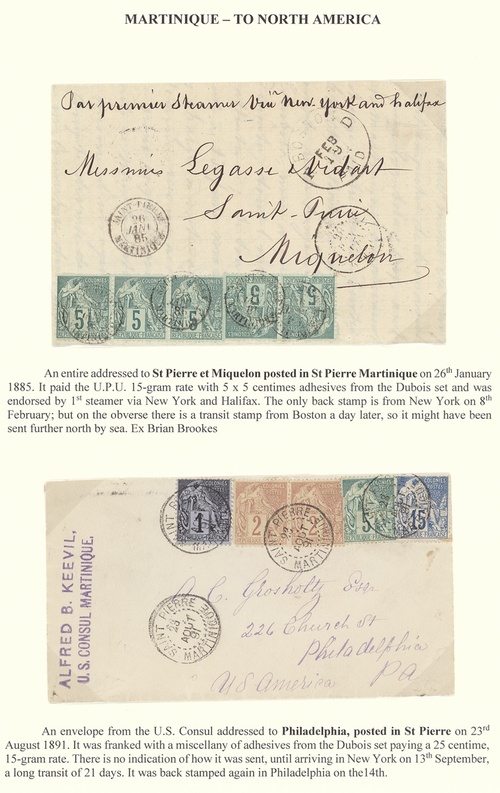 MARTINIQUE – TO NORTH AMERICA
Par premier Steamer Via New-York and halifax
BOSTON
FEB
PAID
Messieurs Legasse & Vidart
Saint-Pierre
Miquelon
SAINT-PIERRE
26
JANV
85
MARTINIQUE
5 5 5 5 5
An entire addressed to St Pierre et Miquelon posted in St Pierre Martinique on 26th January
1885. It paid the U.P.U. 15-gram rate with 5 x 5 centimes adhesives from the Dubois set and was
endorsed by 1st steamer via New York and Halifax. The only back stamp is from New York on 8th
February; but on the obverse there is a transit stamp from Boston a day later, so it might have been
sent further north by sea. Ex Brian Brookes
1 2 2 5 15
SAINT PIERRE
MARTINIQUE
ALFRED B. KEEVIL,
U.S. CONSUL MARTINIQUE.
SAINT PIERRE
23
AOUT
91
MARTINIQUE
A. C. Grosholtz Esqr
226 Church St
Philadelphia
Pa
US America
An envelope from the U.S. Consul addressed to Philadelphia, posted in St Pierre on 23rd
August 1891. It was franked with a miscellany of adhesives from the Dubois set paying a 25 centime,
15-gram rate. There is no indication of how it was sent, until arriving in New York on 13th September,
a long transit of 21 days. It was back stamped again in Philadelphia on the14th.